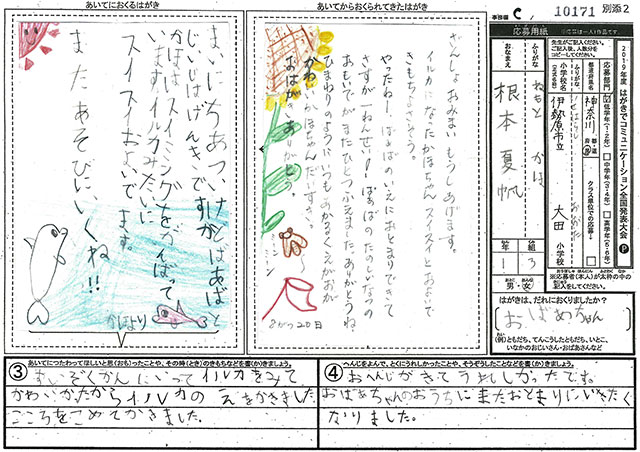 あいてにおくるはがき
まいにちあついけどばあばと
じいじはげんきですか
かほは、スイミングをがんばって
います。イルカみたいに
スイスイおよいでます。
またあそびにいくね!!
かほより
あいてからおくられてきたはがき
ざんしょおみまいもうしあげます。
イルカになったかほちゃんスイスイとおよいで
きもちよさそう。
やったねー ばぁばのいえにおとまりできて
さすが一ねんせい! ばぁばのたのしいなつの
おもいでがまたひとつふえました ありがとうね
ひまわりのようにいつもあかるいえがおが
かわいいかほちゃんだいすき。
おはがきありがとう
8がつ20日
事務欄 C
10171 別添2
応募用紙
※応募は一人1作品です。
2019年度 はがきでコミュニケーション全国発表大会 P
先生がご記入ください。
ご記入後、人数分を
コピーしてください。
応募部門
低学年(1・2年)
中学年(3・4年)
高学年(5・6年)
都道府県名
神奈川
都道府県
クラス単位での応募
ふりがな
小学校名
伊勢原市立
大田 小学校
ふりがな
ねもと かほ
おなまえ
根本 夏帆
年 組
1 3
男・女
※応募者(本人)が太枠の中の
記入をしてください。
はがきは、だれにおくりましたか?
おばあちゃん
(例)ともだち、てんこうしたともだち、いとこ、
いなかのおじいさん・おばあさんなど
③ あいてにつたわってほしいと思(おも)ったことや、その時(とき)のきもちなどを書(か)きましょう。
すいぞくかんにいってイルカをみて
かわいかったからイルカのえをかきました。
こころをこめてかきました。
④ へんじをよんで、とくにうれしかったことや、そうぞうしたことなどを書(か)きましょう。
おへんじがきてうれしかったです。
おばあちゃんのおうちにまたおとまりにいきたく
なりました。